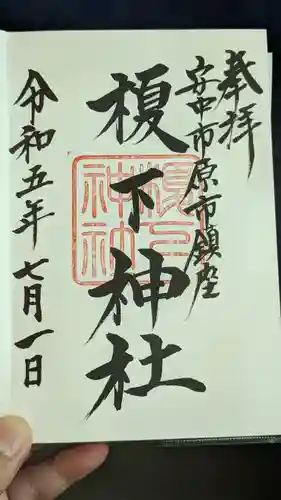 奉拝
安中市原市鎮座
榎下神社
令和五年七月一日
榎下
神社